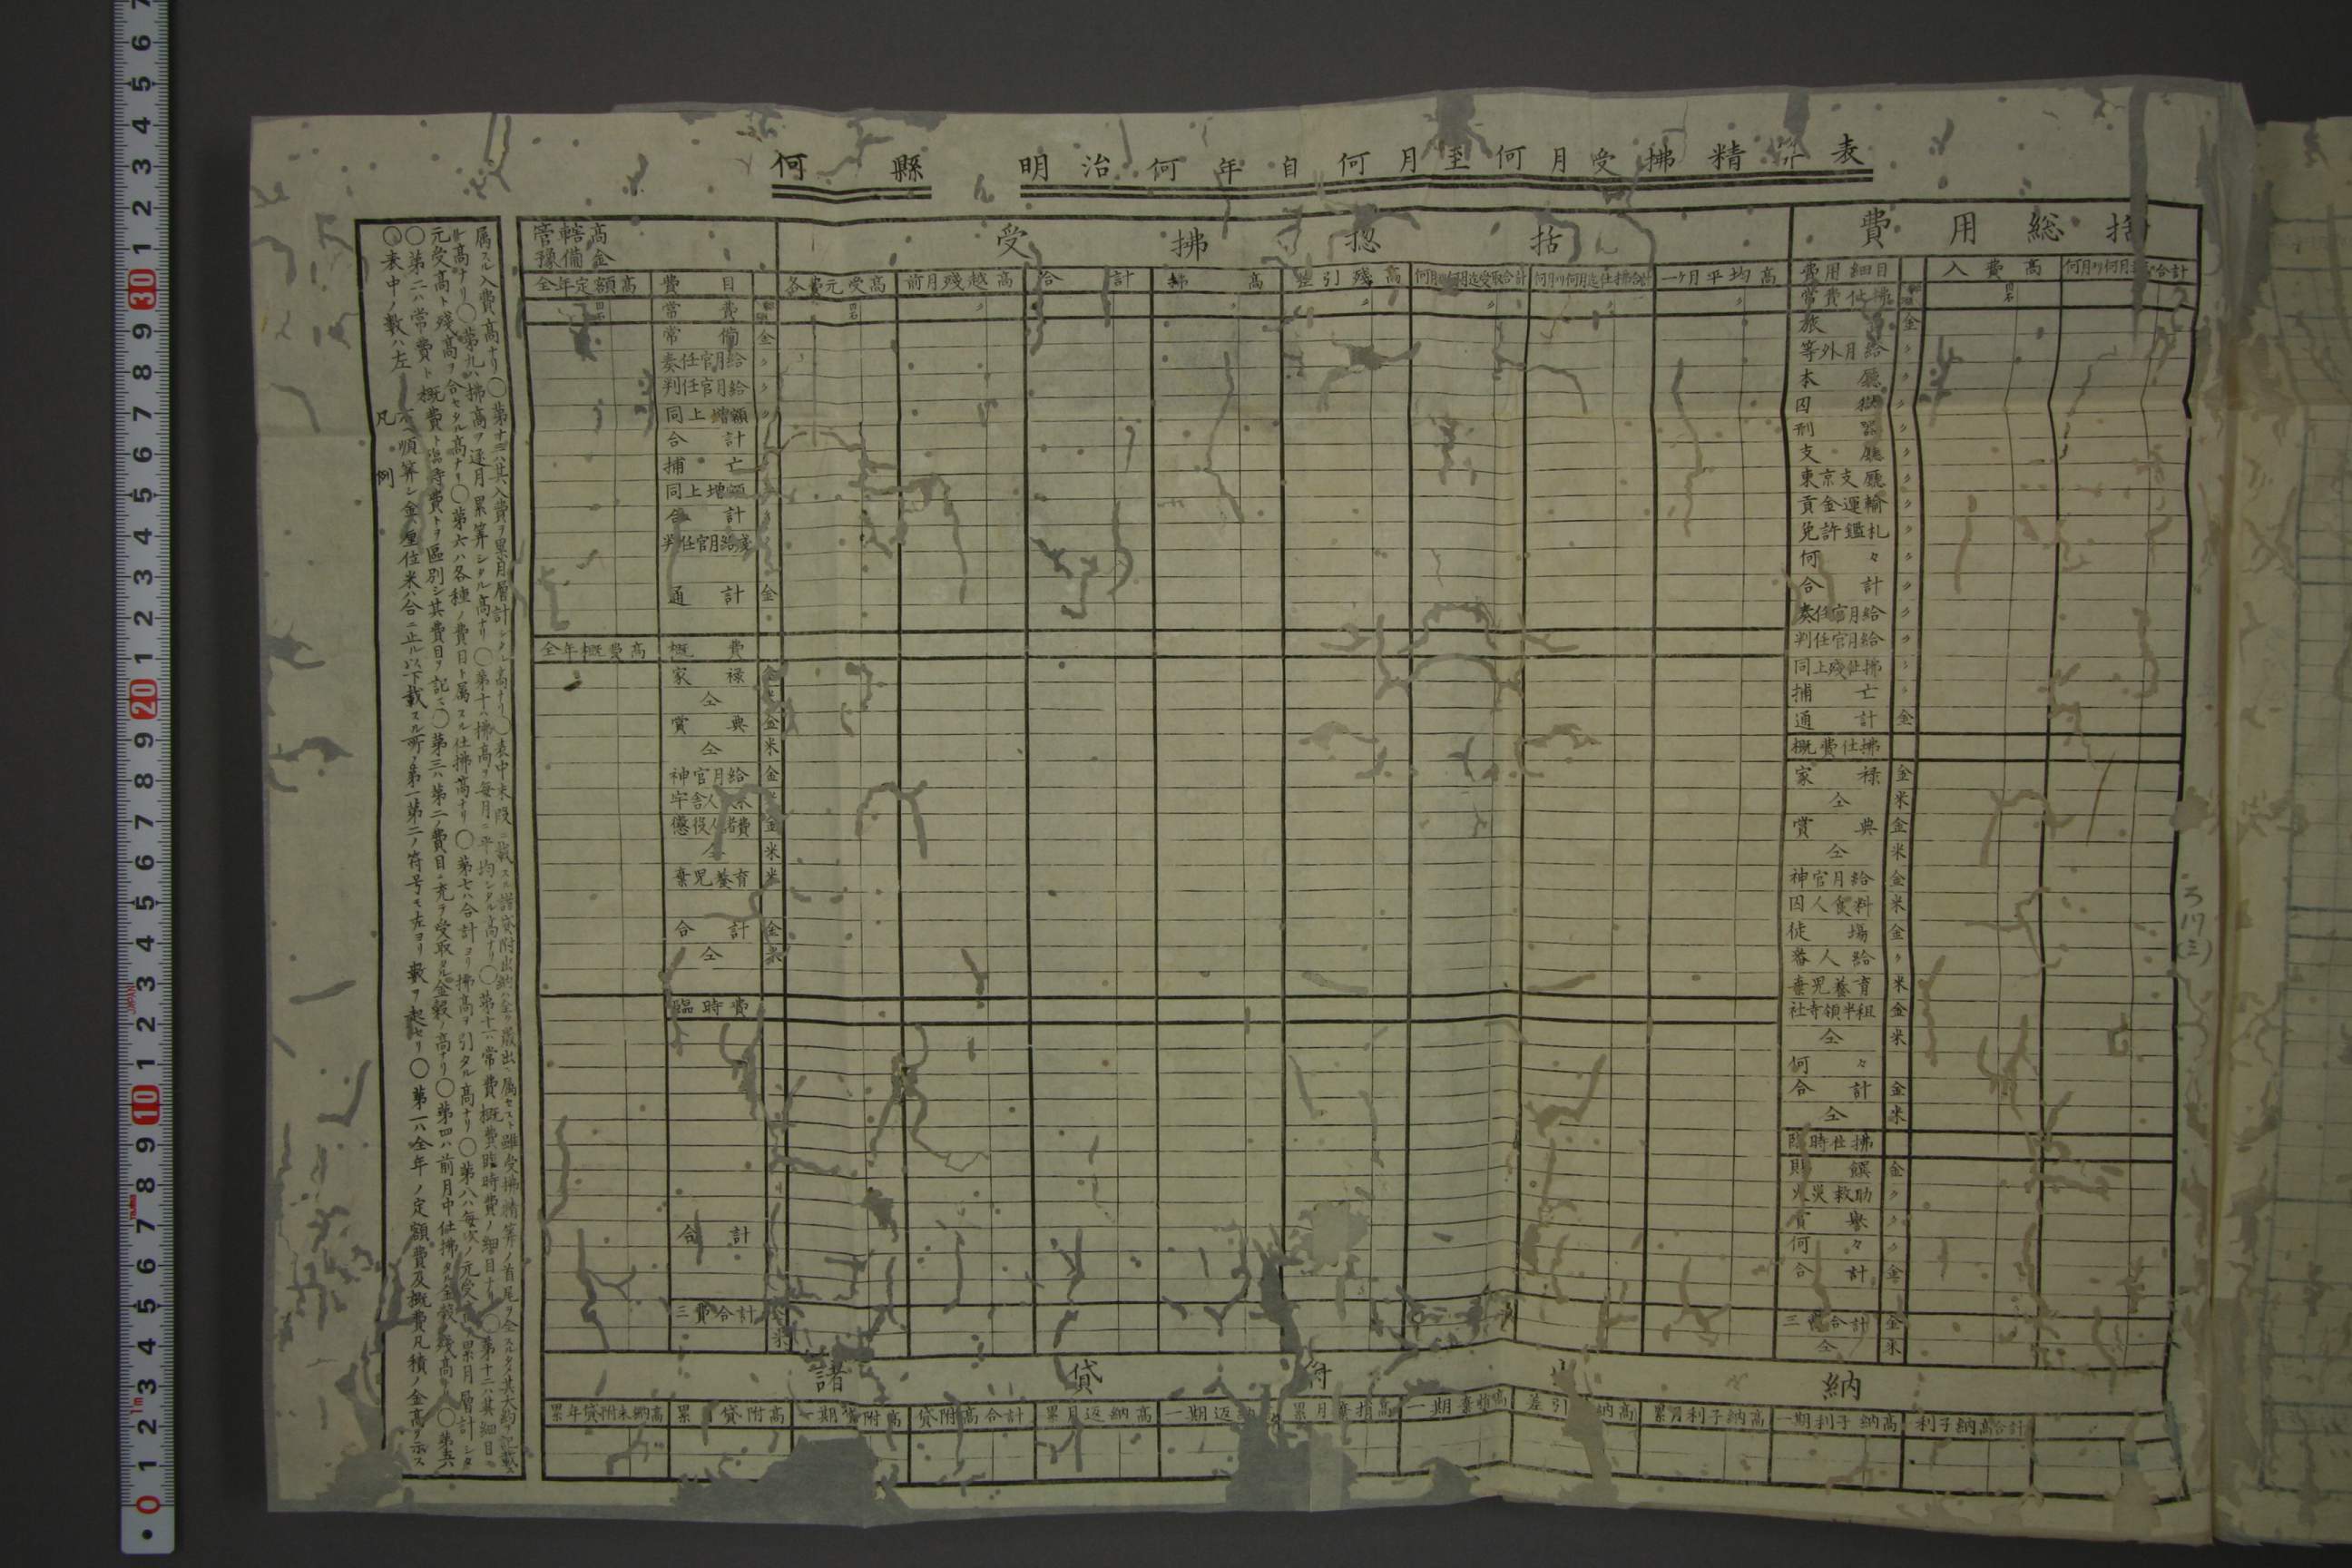 何縣 明治何年自何月至何月受拂精算表
管轄高
豫備金
受拂惣括
費用総括
全年定額高 費目 各費元受高 前月殘越高 合計 拂高 差引殘高 何月ヨリ何月迄受取合計 何月ヨリ何月迄仕拂合計 一ケ月平均高
費用細目 入費高
常費
常備 金
奏任官月給
判任官月給
同上増額
合計
捕亡
同上増額
合計
判任官月給殘
通計 金
全年概費高 概費
家禄 金
仝
賞典 金
仝 米
神官月給 金
懲役人諸費 金
仝 米
棄児養育 米
合計 金
仝 米
臨時費
合計
三費合計
常費仕拂
旅費 金
等外月給
本廳
囚獄
刑器
支廳
東京支廳
貢金運輸
免許鑑札
何々
合計
奏任官月給
判任官月給
同上殘仕拂
捕亡
通計 金
概費仕拂
家禄 金
仝 米
賞典 金
仝 米
神官月給 金
囚人食料 米
徒場 金
番人給
棄児養育 米
社寺領半租 金
仝 米
何々
合計 金
仝 米
臨時仕拂
金
火災救助
賞譽
何々
合計 金
三費合計 金
仝 米
諸貸附出納
累年貸附未納高 累月貸附高 一期貸附高 貸附高合計 累月返納高 一期返納高 累月棄捐高 一期棄捐高 差引納高 累月利子納高 一期利子納高 利子納高合計
凡例
○表中ノ數ハ左ヘ順算シ金ハ厘位米ハ合ニ止ル以下載スル所ノ第一第二ノ符号モ左ヨリ數ヲ起セリ○第一ハ全年ノ定額費及概費凡積ノ金高ヲ示ス
○第二ハ常費ト概費ト臨時費トヲ區別シ其費目ヲ記ス○第三ハ第二ノ費目ニ充ヲ受取タル金穀ノ高ナリ○第四ハ前月中仕拂タル金穀ノ殘高ナリ○第五ハ
元受高ト殘高ヲ合セタル高ナリ○第六ハ各種ノ費目ト属スル仕拂高ナリ○第七ハ合計ヨリ拂高ヲ引タル高ナリ○第八ハ毎次ノ元受高ヲ累月層計シタ
ル高ナリ○第九ハ拂高ヲ逐月累算シタル高ナリ○第十ハ拂高ヲ毎月ニ平均シタル高ナリ○第十一ハ常費概費臨時費ノ細目ナリ○第十二ハ其細目ニ
属スル入費高ナリ○第十三ハ其入費ヲ累月層計シタル高ナリ○表中末段ニ載スル諸貸附出納ハ全ク歳出ニ属セスト雖受拂精算ノ首尾ヲ全スルタメ其大約ヲ記載ス
ろ
17
(三)